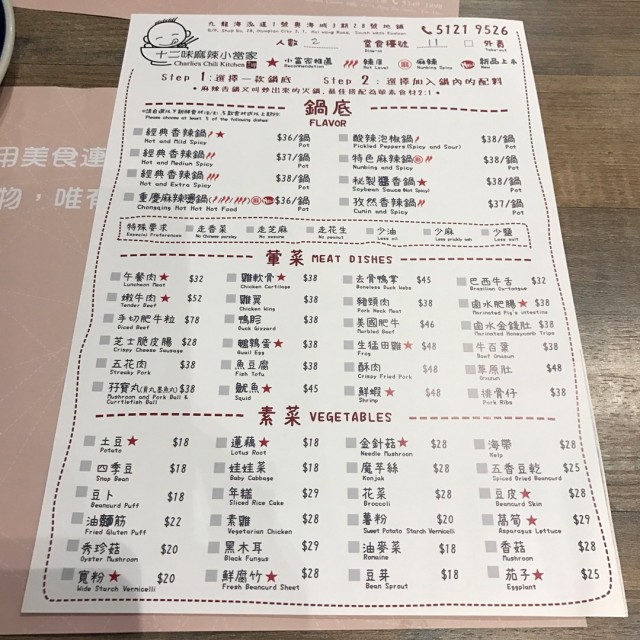 九龍海泓道1號奧海城3期28號地舖
G/F, Shop No. 28, Olympian City 3, 1, Hoi Wang Road, South West Kowloon
51219526
十二味麻辣小當家
Charlies Chili Kitchen
人數 2 堂食檯號 11 外賣
Take-out
小當家推薦 辣度 麻辣 新品上市
Recommendation Hot Level Numbing Spicy New
Step 1:選擇一款鍋底 Step 2:選擇加入鍋內的配料
•麻辣香鍋又叫炒出來的火鍋,最佳搭配為葷素食材2:1•
鍋底
FLAVOR
Please choose at least 5 of the following dishes
經典香辣鍋 $36/鍋 酸辣泡椒鍋 $38/鍋
Hot and Mild Spicy Pot Pickled Peppers(Spicy and Sour) Pot
經典香辣鍋 $37/鍋 特色麻辣鍋 $38/鍋
Hot and Medium Spicy Pot Numbing and Spicy Pot
經典香辣鍋 $38/鍋 秘製醬香鍋 $38/鍋
Hot and Extra Spicy Pot Soybean Sauce(Not Spicy) Pot
重慶麻辣燙鍋 $36/鍋 孜然香辣鍋 $37/鍋
Chongqing Hot Hot Hot Food Pot Cumin and Spicy Pot
特殊要求 走香菜 走芝麻 走花生 少油 少麻 少鹽
Especial Preferences No Chinese parsley No sesame No peanut Less oil Less prickly ash Less salt
葷菜 MEAT DISHES
午餐肉 $32 雞軟骨 $38 去骨鴨掌 $45 巴西牛舌 $32
Luncheon Meat Chicken Cartilage Boneless Duck Webs Brazilian Ox-tongue
嫩牛肉 $52 雞翼 $38 豬頸肉 $38 鹵水肥腸 $38
Tender Beef Chicken Wing Pork Neck Meat Marinated Pig's intestine
手切肥牛粒 $78 鴨胗 $38 美國肥牛 $48 鹵水金錢肚 $38
Diced Beef Duck Gizzard Marbled Beef Marinated Honeycomb Tripe
芝士脆皮腸 $28 鵪鶉蛋 $38 生猛田雞 $48 牛百葉 $38
Crispy Cheese Sausage Quail Egg Frog Beef Omasum
五花肉 $38 魚豆腐 $38 酥肉 $48 草原肚 $48
Streaky Pork Fish Tofu Crispy Fried Pork Omasum
孖寶丸(貢丸墨魚丸) $38 魷魚 $45 鮮蝦 $48 排骨仔 $38
Mushroom and Pork Ball & Currtlefish Ball Squid Shrimp Pork Ribs
素菜 VEGETABLES
土豆 $18 蓮藕 $18 金針菇 $28 海帶 $28
Potato Lotus Root Needle Mushroom Kelp
四季豆 $18 娃娃菜 $18 魔芋絲 $28 五香豆乾 $25
Snap Bean Baby Cabbage Konjak Spiced Dried Beancurd
豆卜 $18 年糕 $29 花菜 $28 豆皮 $28
Beancurd Puff Sliced Rice Cake Broccoli Beancurd Skin
油麵筋 $22 素雞 $28 薯粉 $20 萵筍 $29
Fried Gluten Puff Vegetarian Chicken Sweet Potato Starch Vermicelli Asparagus Lettuce
秀珍菇 $20 黑木耳 $29 油麥菜 $18 香菇 $28
Oyster Mushroom Black Fungus Romaine Mushroom
寬粉 $20 鮮腐竹 $28 豆芽 $18 茄子 $25
Wide Starch Vermicelli Fresh Beancurd Sheet Bean Sprout Eggplant
用美食連
物,唯有